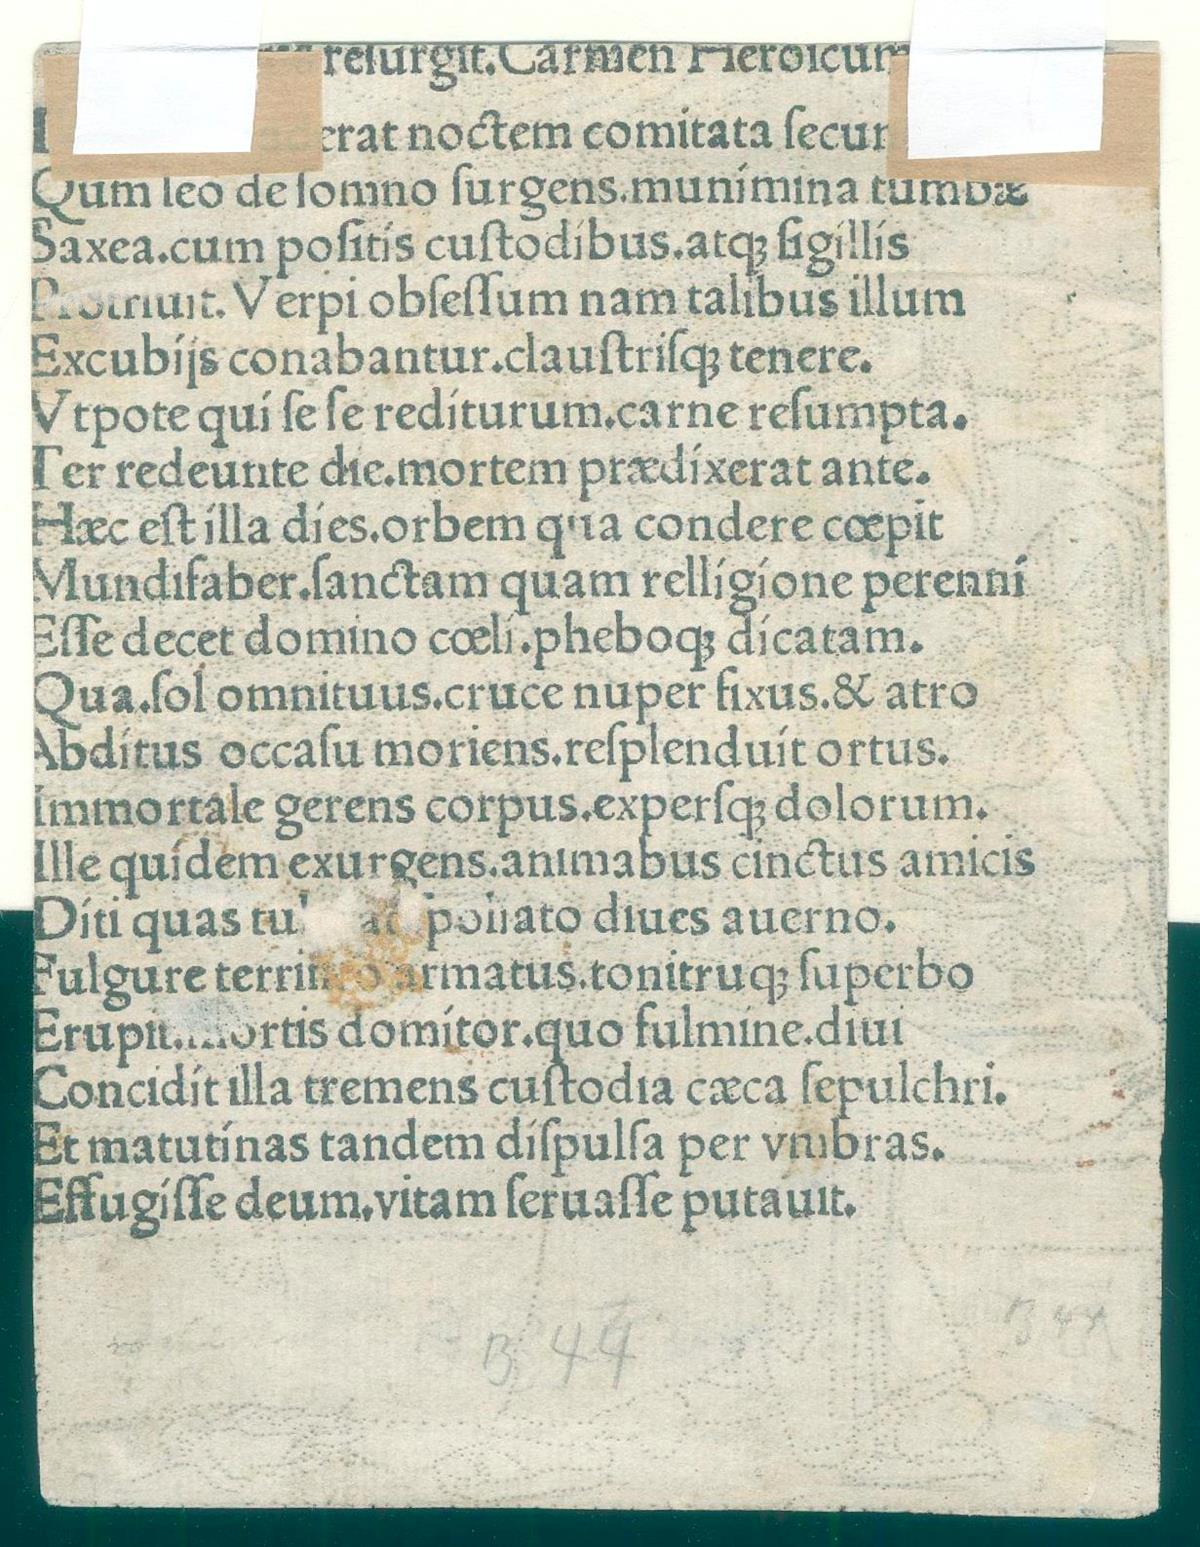 resurgit.Carmen Heroicum
noctem comitata
Qum leo de ſomno ſurgens.munimina tumbæ
Saxea.cum poſitis cuſtodibus.atqꝫ ſigillis
Protriuit. Verpi obſeſſum nam talibus illum
Excubijs conabantur.clauſtriſqꝫ tenere.
Vtpote qui ſe ſe rediturum.carne reſumpta.
Ter redeunte die.mortem prædixerat ante.
Hæc eſt illa dies.orbem qua condere cœpit
Mundifaber.ſanctam quam relligione perenni
Eſſe decet domino cœli.pheboqꝫ dicatam.
Qua.ſol omnituus.cruce nuper fixus.& atro
Abditus occaſu moriens.reſplenduit ortus.
Immortale gerens corpus.experſqꝫ dolorum.
Ille quidem exurgens.animabus cinctus amicis
Diti quas diues auerno.
Fulgure armatus.tonitruqꝫ ſuperbo
Erupit.mortis domitor.quo fulmine.diui
Concidit illa tremens cuſtodia cæca ſepulchri.
Et matutinas tandem diſpulſa per vmbras.
Effugiſſe deum.vitam ſeruaſſe putauit.
B 44 B 44